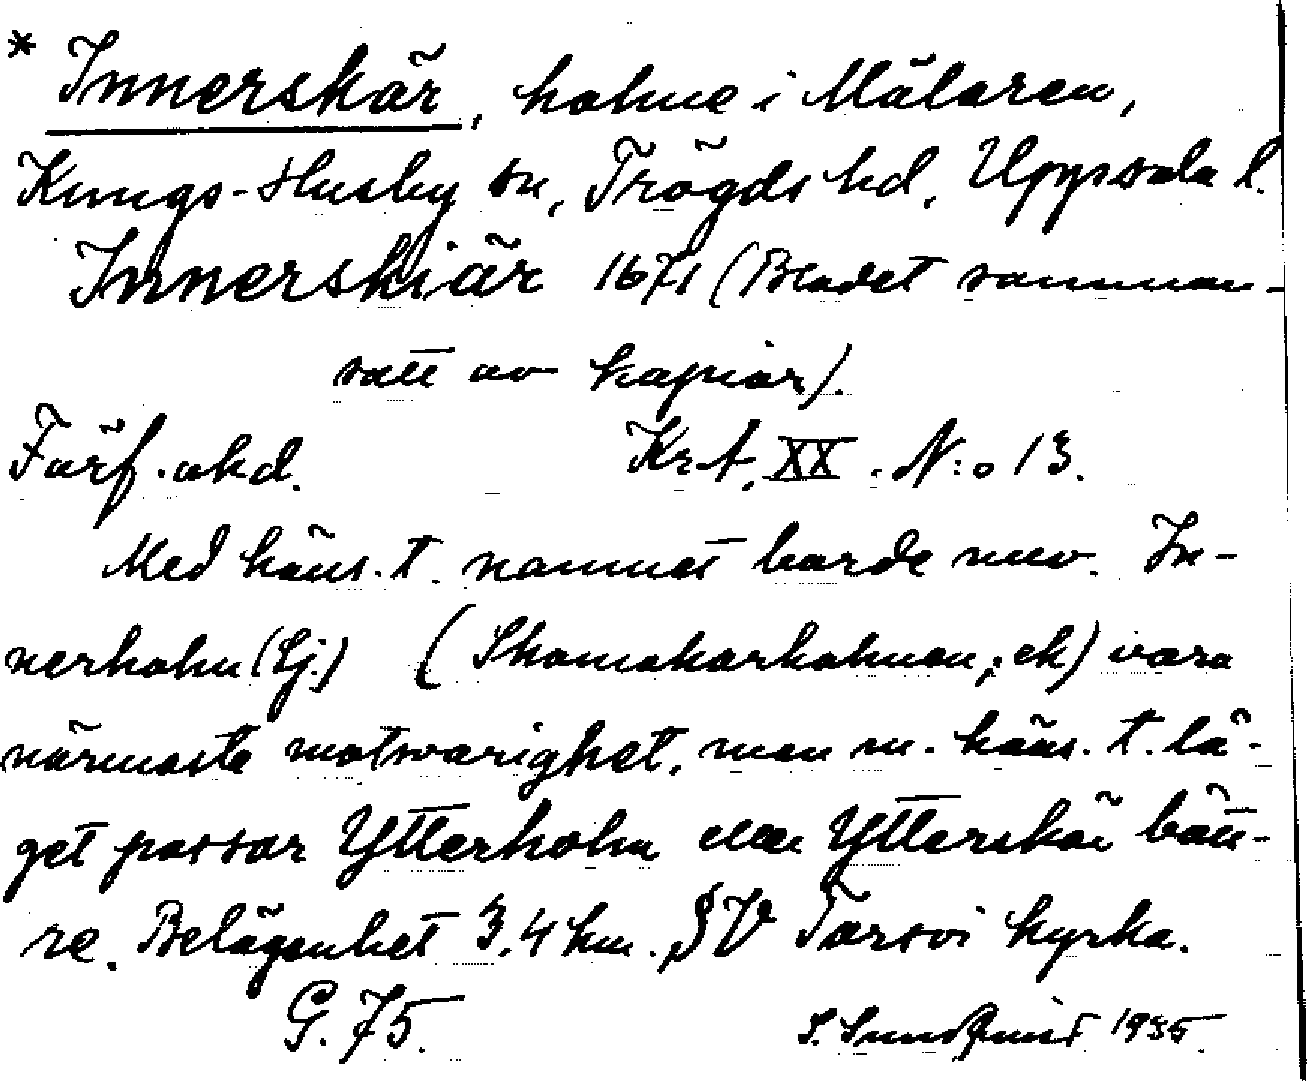 * Innerskär, holme i Mälaren,
Kungs-Husby sn, Trögds hd, Uppsala l.
Innerskiär 1671 (Bladet samman-
satt av kopior).
Förf. okd. Krt. XX. N:o 13.
Med häns. t. namnet borde nuv. In-
nerholm (Ej.) (Skomakarholmen, ek) vara
närmaste motsvarighet, men m. häns. t. lä-
get passar Ytterholm eller Ytterskär bätt-
re. Belägenhet 3,4 km. SV Torsvi kyrka.
G. 75. S. Sundqvist 1935.